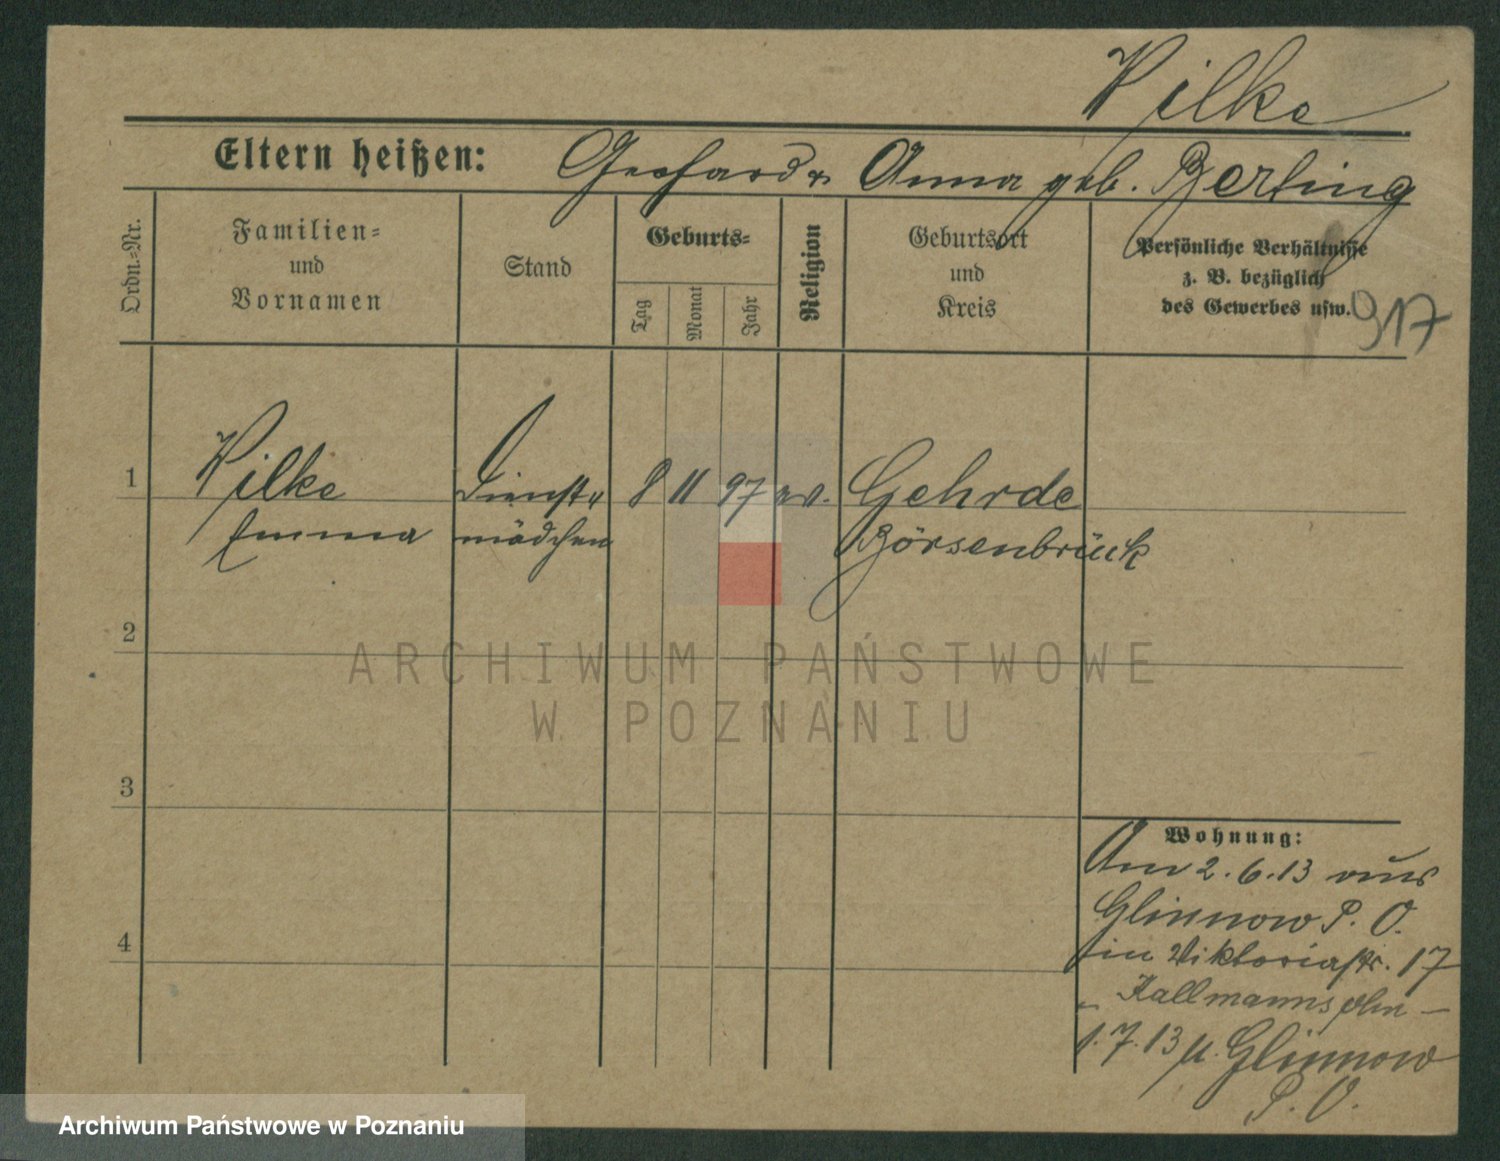 Wilke
Eltern heißen: Gerhard u. Anna geb. Berling
Ordn.-Nr.
Familien-
und
Vornamen
Stand
Geburts-
Tag
Monat
Jahr
Religion
Geburtsort
und
Kreis
Persönliche Verhältnisse
z. B. bezüglich
des Gewerbes usw.
917
1
Wilke
Emma
Dienst-
mädchen
8 11 97 ev.
Gehrde
Börsenbrück
2
3
4
Wohnung:
Am 2.6.13 aus
Glinnow P. O.
in Viktoriastr. 17
Kallmannsohn
1.7.13 n. Glinnow
P. O.
ARCHIWUM PAŃSTWOWE
W POZNANIU
Archiwum Państwowe w Poznaniu